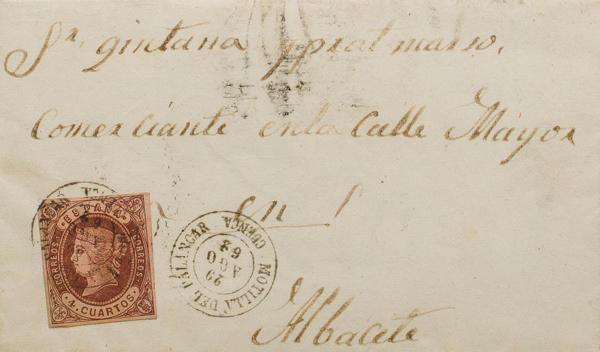 Sr. gintana
Comerciante en la Calle Mayor
en
Albacete
ESPAÑA
CORREOS
CORREOS
4 CUARTOS
MOTILLA DEL PALANCAR
CUENCA
29
AGO
63